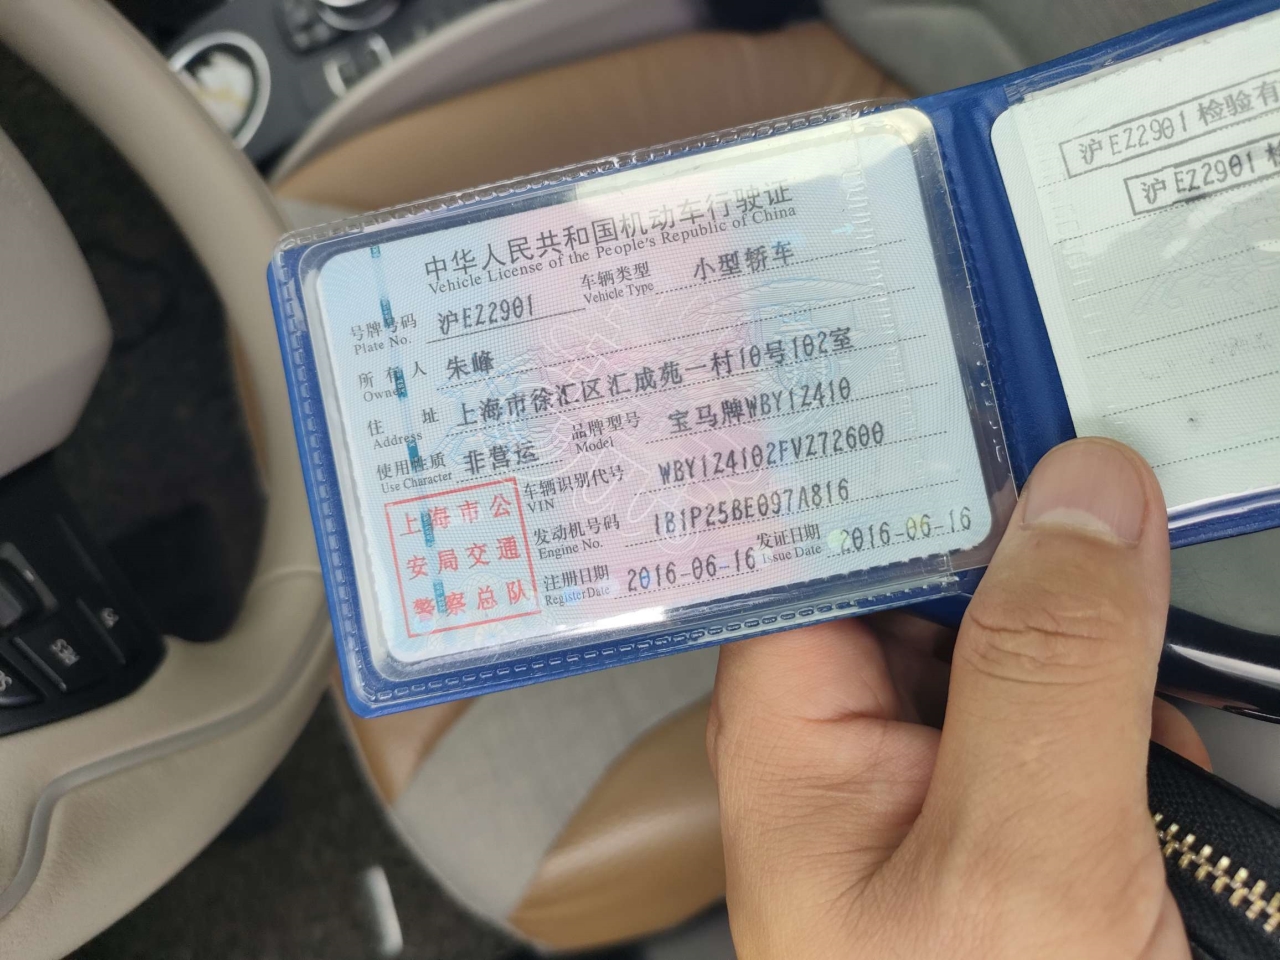 中华人民共和国机动车行驶证
Vehicle License of the People's Republic of China
号牌号码 沪EZ2901 车辆类型 小型轿车
Plate No. Vehicle Type
所有人 朱峰
Owner
住址 上海市徐汇区汇成苑一村10号102室
Address
使用性质 非营运 品牌型号 宝马牌WBY1Z410
Use Character Model
车辆识别代号 WBY1Z4102FVZ72600
VIN
发动机号码 1B1P25BE097A816
Engine No.
注册日期 2016-06-16 发证日期 2016-06-16
Register Date Issue Date
上海市公
安局交通
警察总队
沪EZ2901 检验有
沪EZ2901